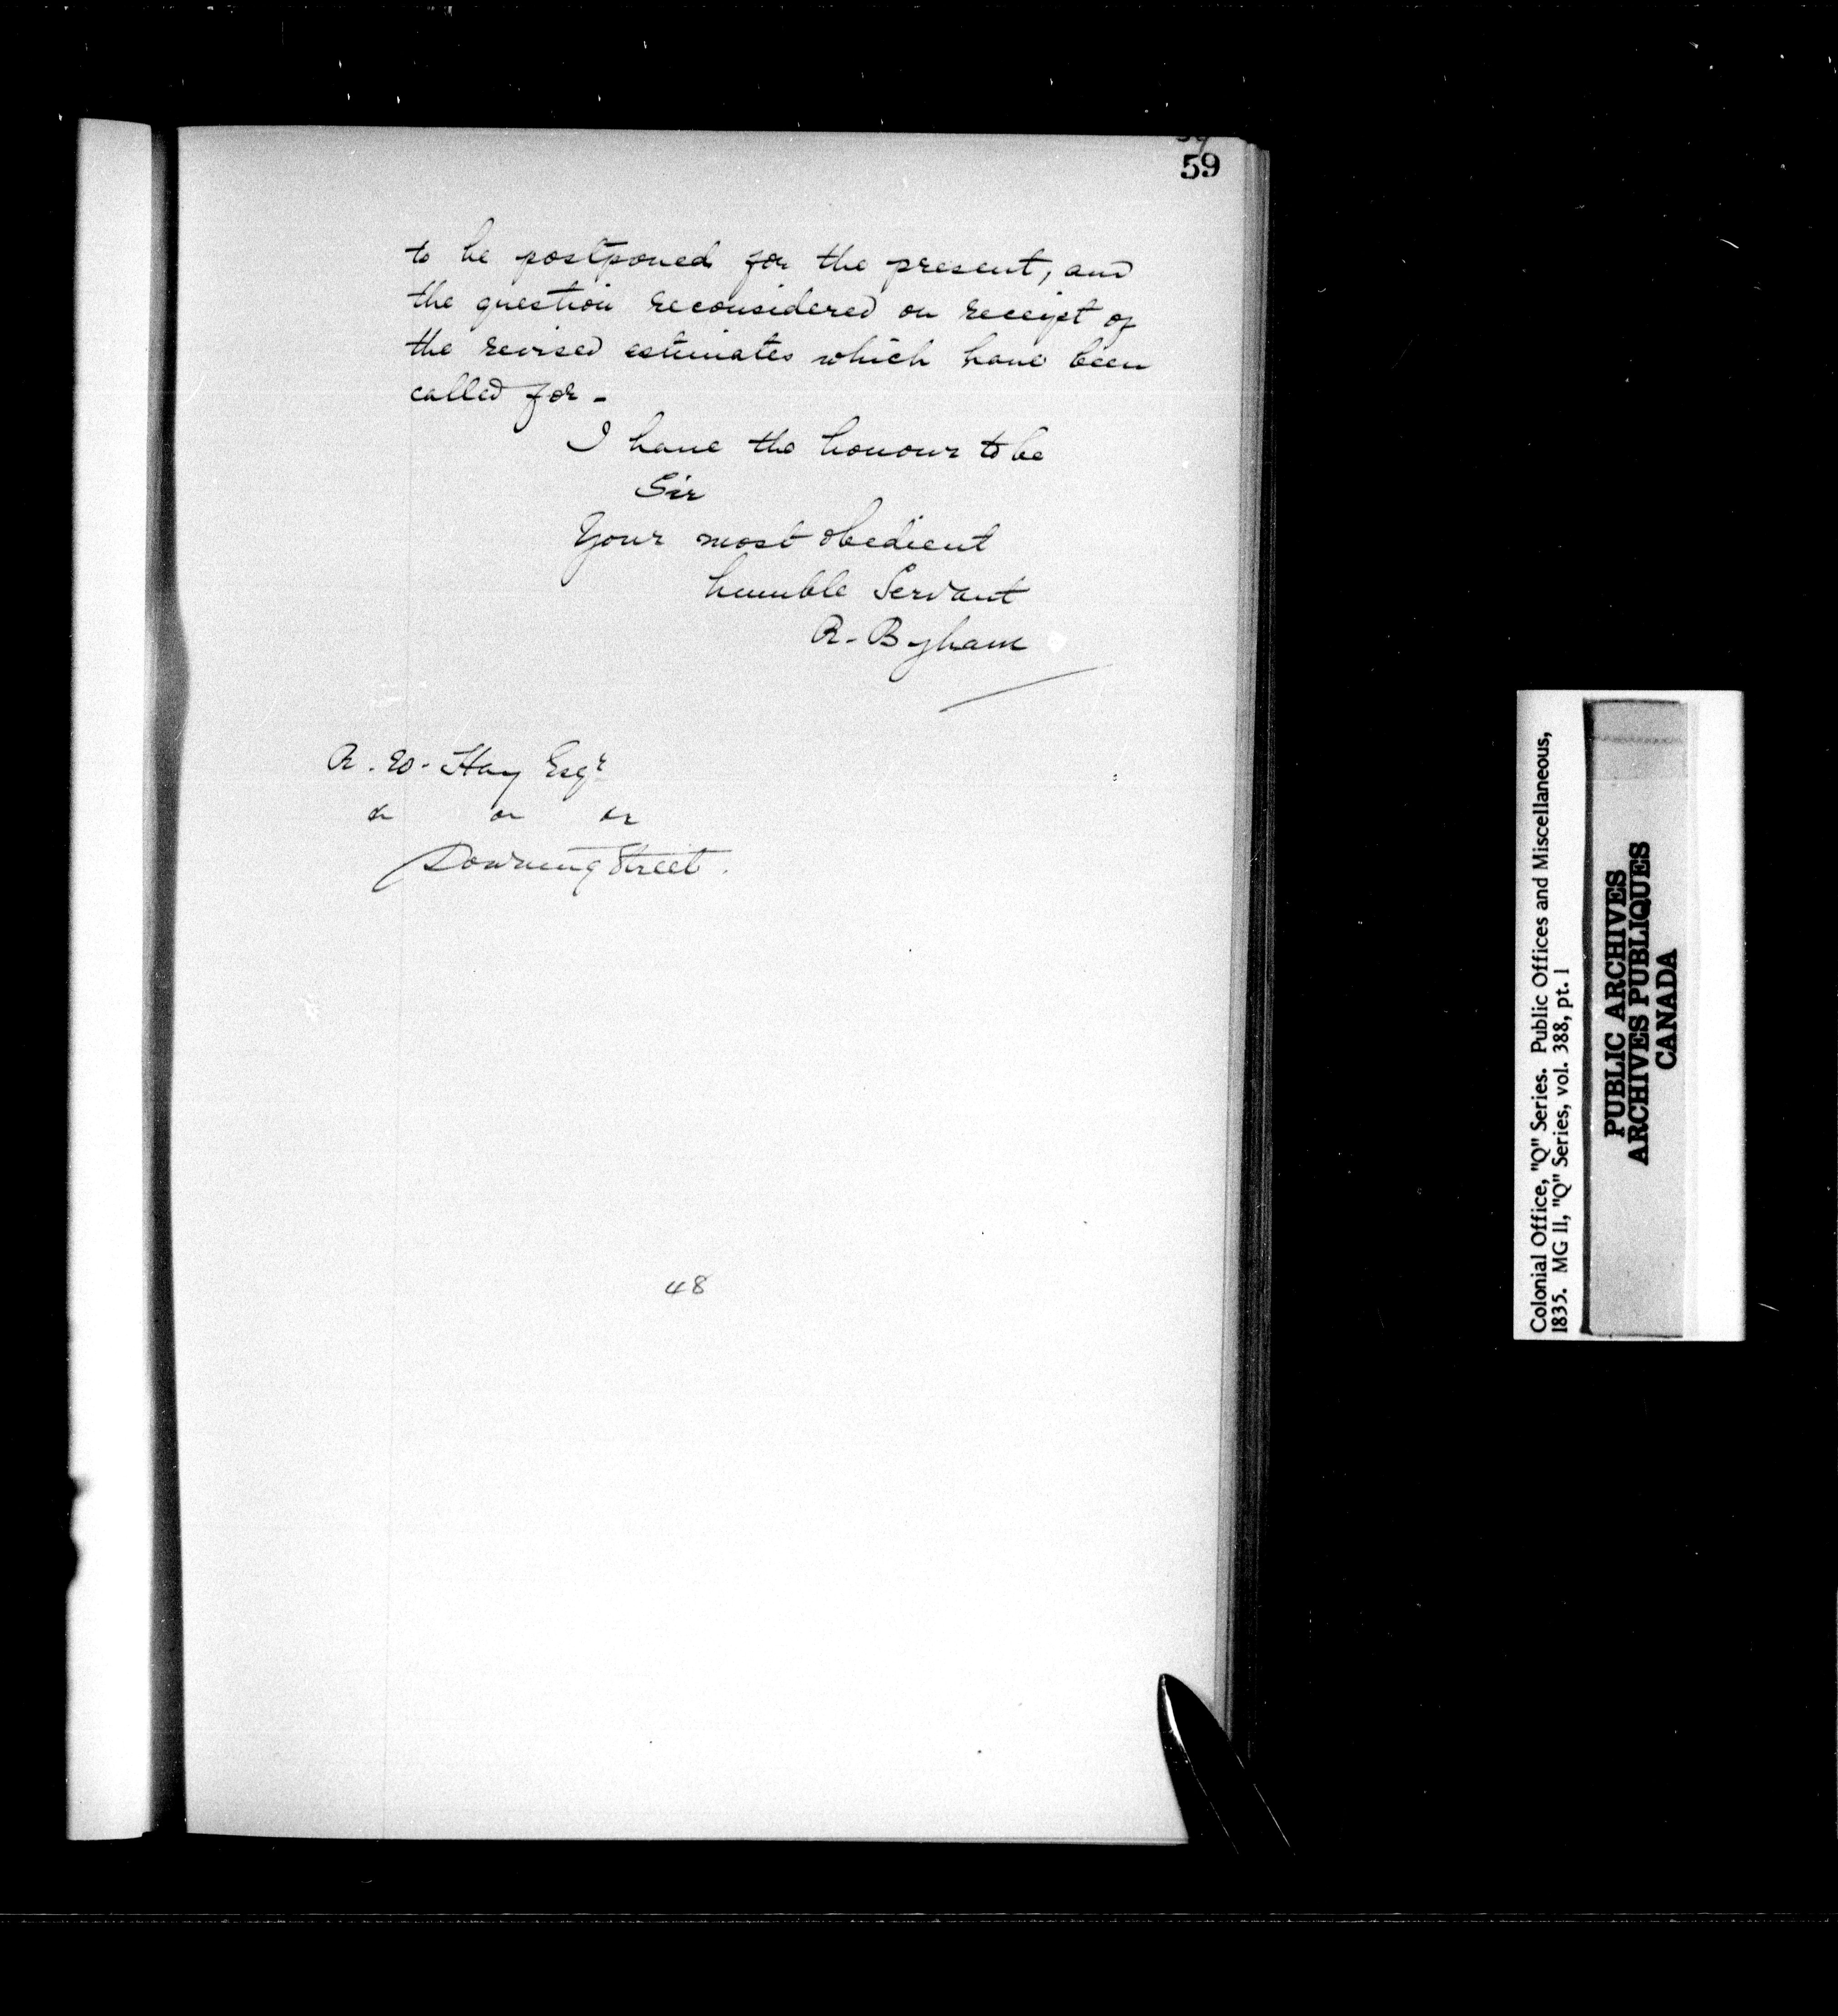 59
to be postponed for the present, and
the question reconsidered on receipt of
the revised estimates which have been
called for -
I have the honour to be
Sir
Your most obedient
humble Servant
R. Byham
R. W. Hay Esqr
Downing Street.
48
Colonial Office, "Q" Series. Public Offices and Miscellaneous,
1835. MG 11, "Q" Series, vol. 388, pt. 1
PUBLIC ARCHIVES
ARCHIVES PUBLIQUES
CANADA